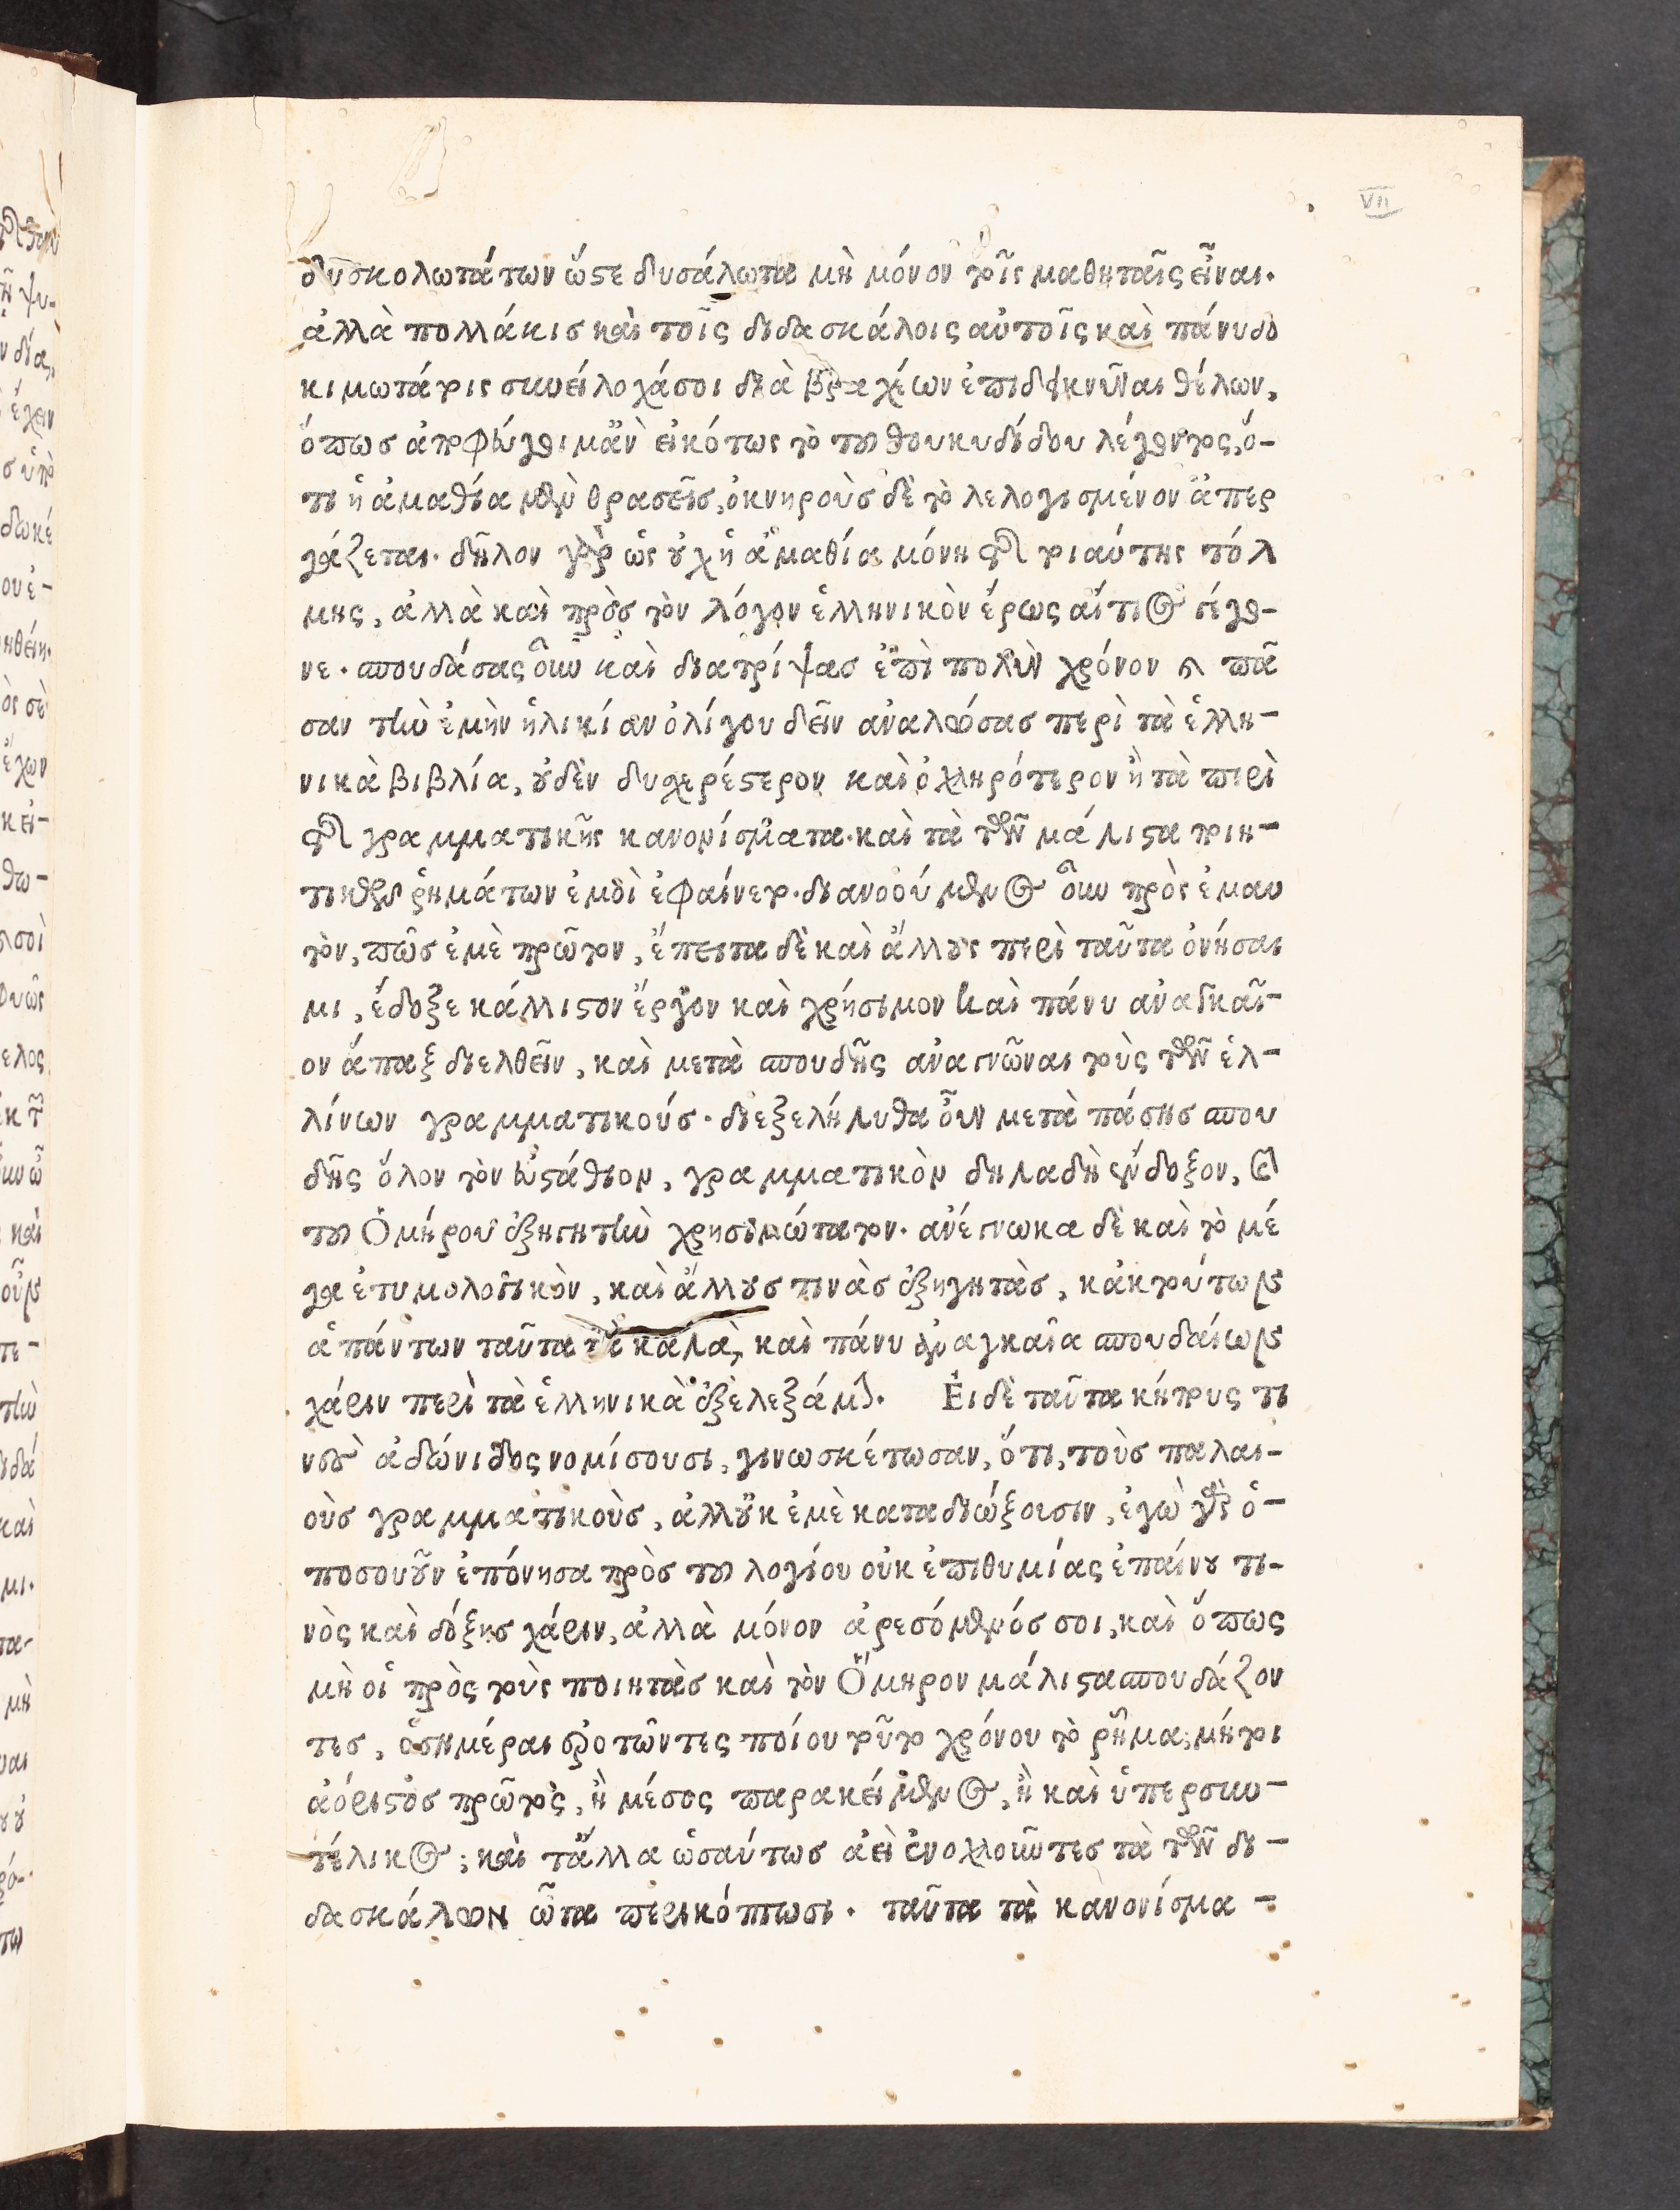 VII
δυσκολωτάτων ὥστε δυσάλωτα μὴ μόνον τοῖς μαθηταῖς εἶναι.
ἀλλὰ πολλάκισ καὶ τοῖς διδασκάλοις αὐτοῖς καὶ πάνυ δο
κιμωτάτοις συνειλοχάσοι διὰ βραχέων ἐπιδεικνῦναι θέλων,
ὅπωσ ἁρμόγοι μἂν εἰκότως τὸ τοῦ θουκυδίδου λέγοντος, ὅ-
τι ἡ ἀμαθία μὲν θρασεῖσ, ὀκνηροὺσ δὲ τὸ λελογισμένον ἀπερ
γάζεται. δῆλον γὰρ ὡς οὐχ ἡ ἀμαθία μόνη τῆς τοιαύτης τόλ
μης, ἀλλὰ καὶ πρὸσ τὸν λόγον ἑλληνικὸν ἔρως αἴτιος γέγο-
νε. σπουδάσας οὖν καὶ διατρίψασ ἐπὶ πολὺν χρόνον καὶ πᾶ
σαν τὴν ἐμὴν ἡλικίαν ὀλίγου δεῖν ἀναλώσασ περὶ τὰ ἑλλη-
νικὰ βιβλία, οὐδὲν δυχερέστερον καὶ ὀχληρότερον ἢ τὰ περὶ
τῆς γραμματικῆς κανονίσματα. καὶ τὰ τῶν μάλιστα ποιη-
τικῶν ῥημάτων ἐμοὶ ἐφαίνετο. διανοούμενος οὖν πρὸς ἐμαυ
τὸν, πῶσ ἐμὲ πρῶτον, ἔπειτα δὲ καὶ ἄλλους περὶ ταῦτα ὀνήσαι
μι, ἔδοξε κάλλιστον ἔργον καὶ χρήσιμον καὶ πάνυ ἀναγκαῖ-
ον ἅπαξ διελθεῖν, καὶ μετὰ σπουδῆς ἀναγνῶναι τοὺς τῶν ἑλ-
λίνων γραμματικούσ. διεξελήλυθα οὖν μετὰ πάσησ σπου
δῆς ὅλον τὸν εὐστάθιον, γραμματικὸν δηλαδὴ ἔνδοξον, καὶ
τοῦ Ὁμήρου ἐξηγητὴν χρησιμώτατον. ἀνέγνωκα δὲ καὶ τὸ μέ
γα ἐτυμολογικὸν, καὶ ἄλλουσ τινὰσ ἐξηγητὰσ, κἀκ τούτων
ἁπάντων ταῦτα τὲ καλὰ, καὶ πάνυ ἀναγκαῖα σπουδαίων
χάριν περὶ τὰ ἑλληνικὰ ἐξελεξάμην. Εἰ δὲ ταῦτα κήπους τι
νὲς ἀδώνιδος νομίσουσι, γινωσκέτωσαν, ὅτι, τοὺσ παλαι-
οὺσ γραμματικοὺσ, ἀλλ οὐκ ἐμὲ καταδιώξουσιν, ἐγὼ γὰρ ὁ-
ποσοῦν ἐπόνησα πρὸσ τοῦ λογίου οὐκ ἐπιθυμίας ἐπαίνου τι-
νὸς καὶ δόξησ χάριν, ἀλλὰ μόνον ἀρεσόμενός σοι, καὶ ὅπως
μὴ οἱ πρὸς τοὺς ποιητὰσ καὶ τὸν Ὅμηρον μάλιστα σπουδάζον
τεσ, ὁσημέραι ἐρωτῶντες ποίου τοῦτο χρόνου τὸ ῥῆμα; μήτοι
ἀόριστόσ πρῶτος, ἢ μέσος παρακείμενος, ἢ καὶ ὑπερσυν-
τέλικος; καὶ τἄλλα ὡσαύτωσ ἀεὶ ἐνοχλοῦντεσ τὰ τῶν δι-
δασκάλων ὦτα περικόπτωσι. ταῦτα τὰ κανονίσμα-